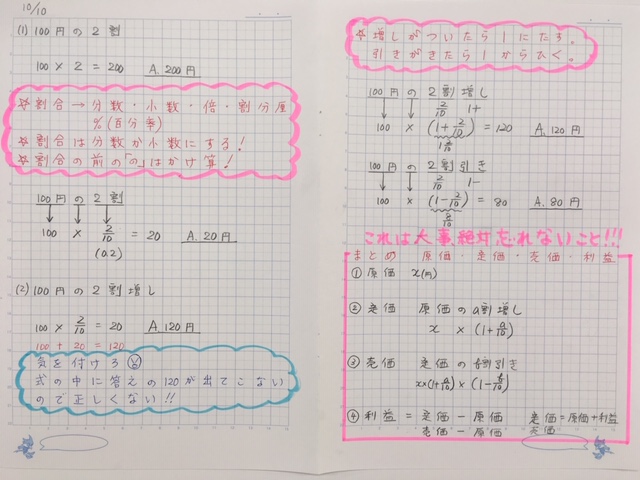 10/10
(1) 100円の2割
100 × 2 = 200 A. 200円
☆割合→分数・小数・倍・割分厘
%(百分率)
☆割合は分数か小数にする!
☆割合の前の「の」はかけ算!
100円の2割
100 × 2/10 = 20 A. 20円
(0.2)
(2) 100円の2割増し
100 × 2/10 = 20 A. 120円
100 + 20 = 120
気を付けろ
式の中に答えの120が出てこない
ので正しくない!!
☆増しがついたら1にたす。
引きがきたら1からひく。
100円の2割増し
2/10 1+
100 × (1+2/10) = 120 A. 120円
100円の2割引き
2/10 1-
100 × (1-2/10) = 80 A. 80円
8/10
これは大事、絶対忘れないこと!!!
まとめ 原価・定価・売価・利益
① 原価 x(円)
② 定価 原価のa割増し
x × (1+a/10)
③ 売価 定価のb割引き
x×(1+a/10) × (1-b/10)
④ 利益 = 定価 - 原価 定価=原価+利益
売価 - 原価 売価